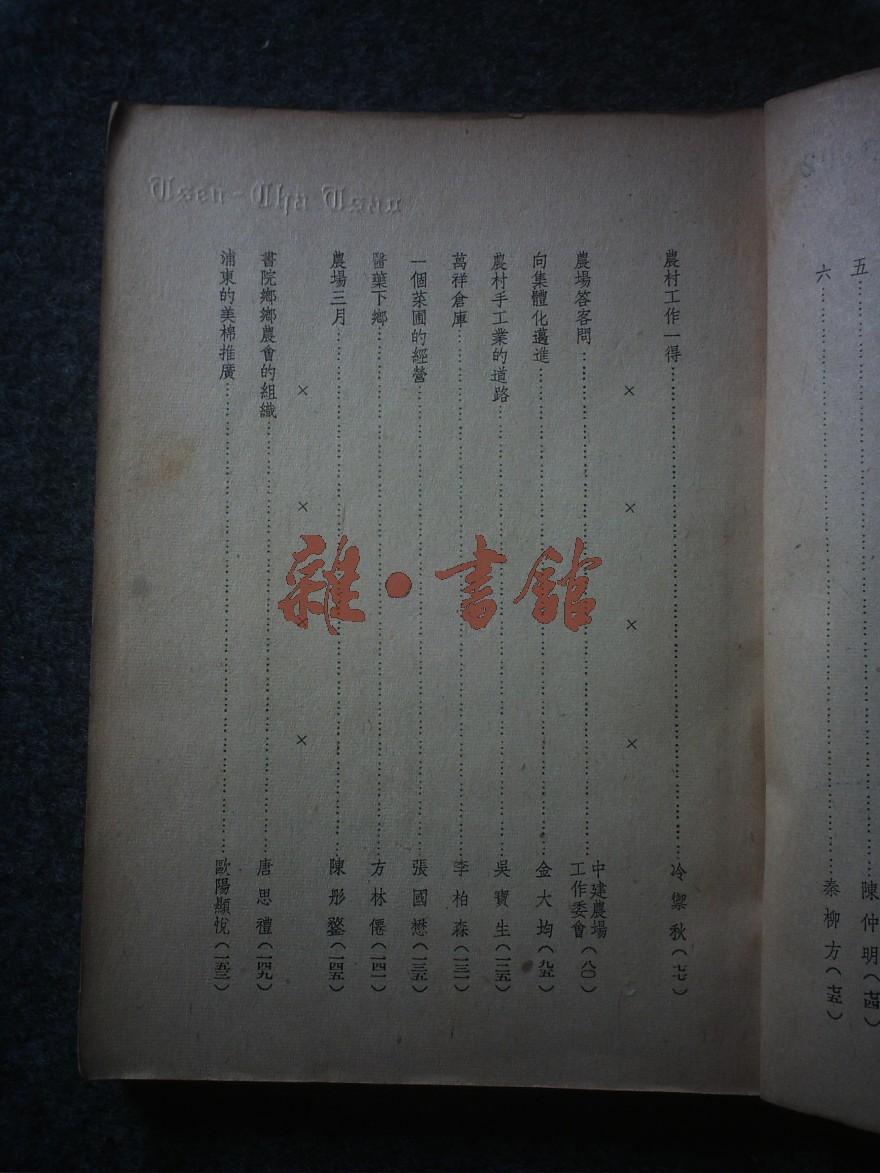 五……陳仲明(七四)
六……秦柳方(七五)
農村工作一得……冷禦秋(七七)
× × × ×
農場答客問……中建農場工作委會(八〇)
向集體化邁進……金大均(九五)
農村手工業的道路……吳寶生(一二五)
萬祥倉庫……李柏森(一三一)
一個菜圃的經營……張國懋(一三五)
醫藥下鄉……方林僊(一四一)
農場三月……陳彤鍪(一四五)
× × × ×
書院鄉鄉農會的組織……唐思禮(一四九)
浦東的美棉推廣……歐陽顯悅(一五三)
雜·書館